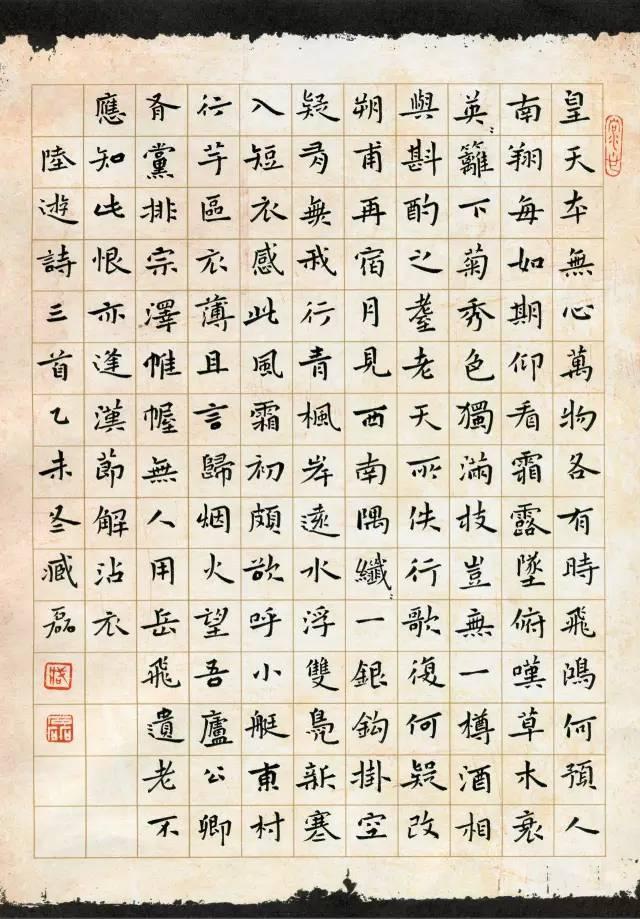 皇天本無心萬物各有時飛鴻何預人
南翔每如期仰看霜露墜俯嘆草木衰
英〻籬下菊秀色獨滿枝豈無一樽酒相
與斟酌之耋老天所佚行歌復何疑改
朔甫再宿月見西南隅纖〻一銀鈎掛空
疑有無我行青楓岸遠水浮雙鳧新寒
入短衣感此風霜初頗欲呼小艇東村
行芋區衣薄且言歸烟火望吾廬公卿
有黨排宗澤帷幄無人用岳飛遺老不
應知此恨亦逢漢節解沾衣
陸遊詩三首乙未冬臧磊